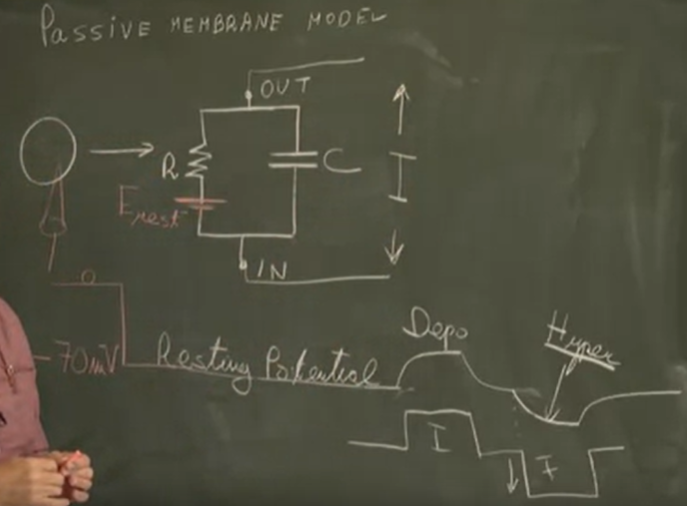 PASSIVE MEMBRANE MODEL
OUT
R
C
I
Erest
IN
0
-70mV
Resting Potential
Depo
Hyper
I
I